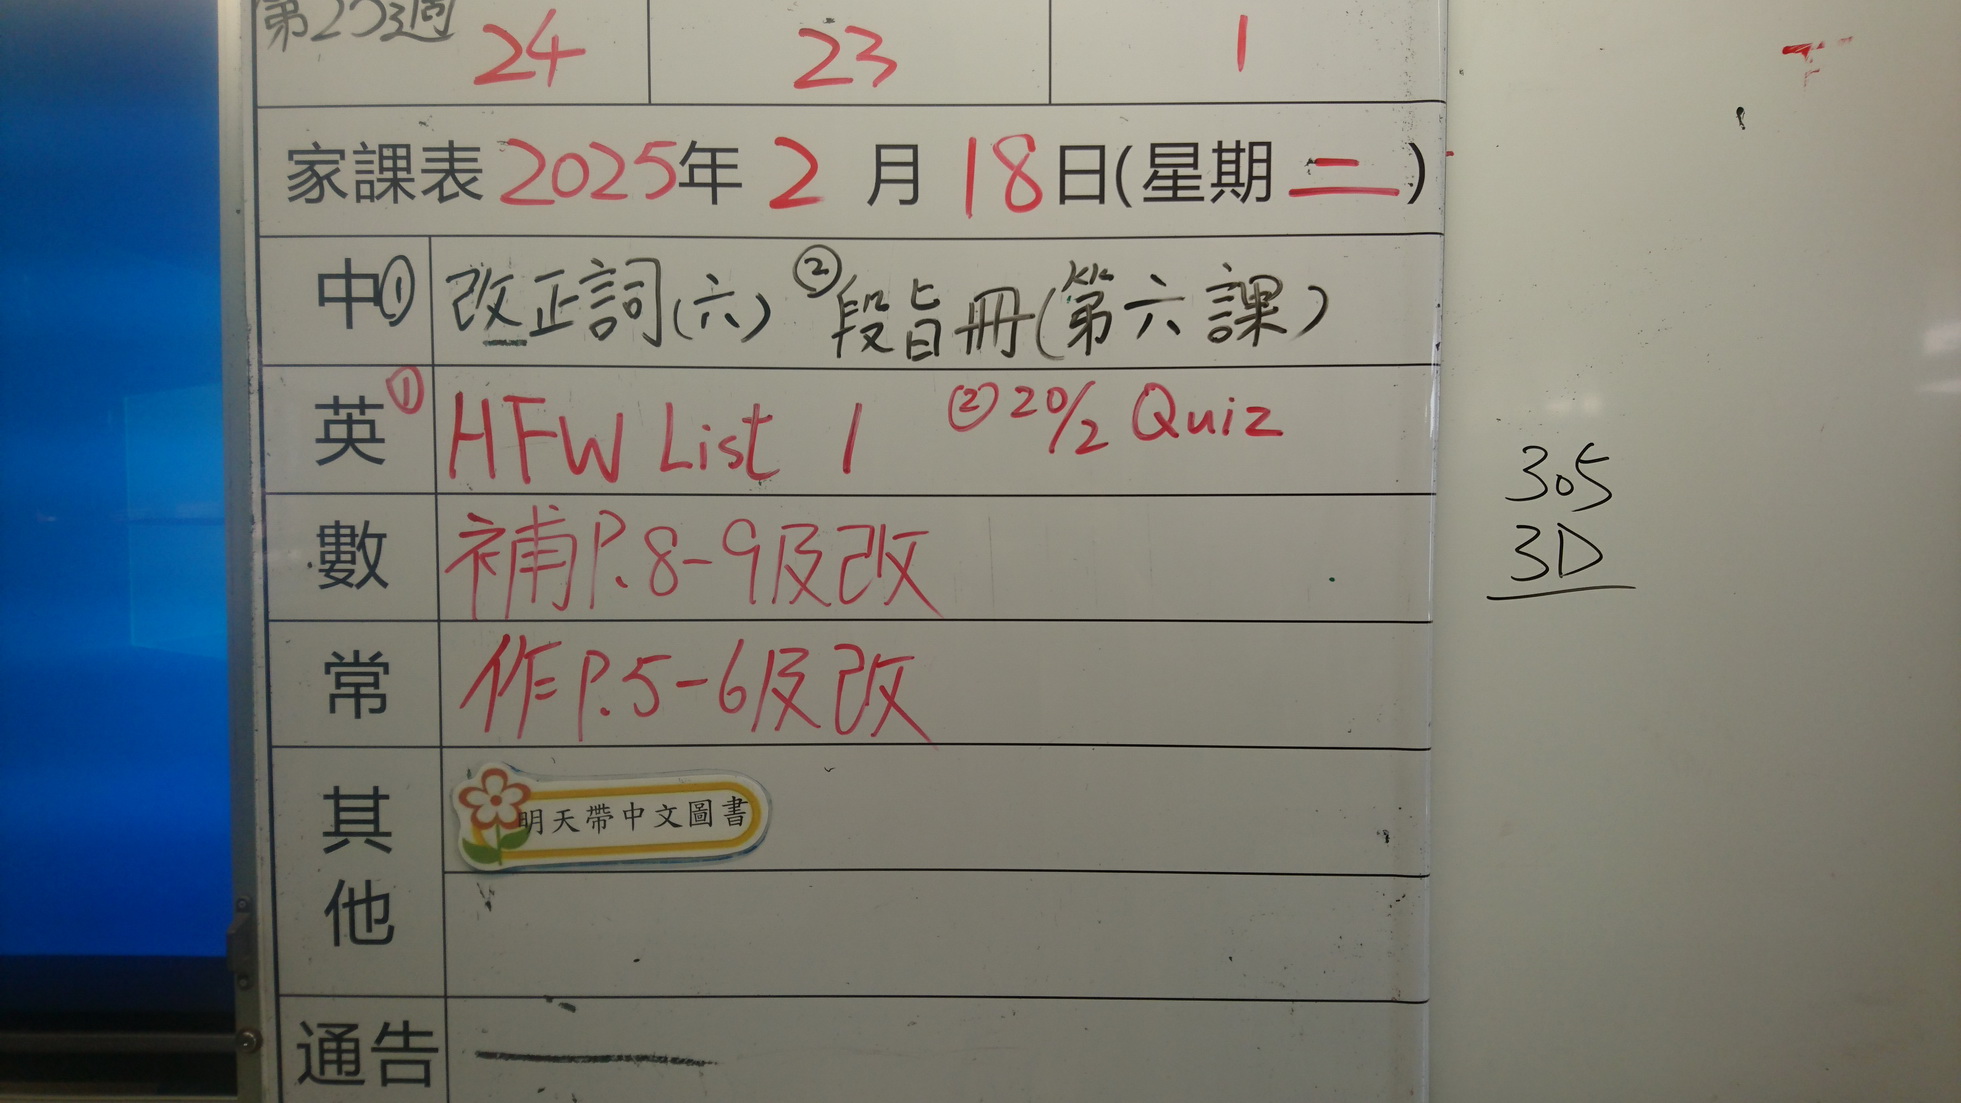 第23週 24 23 1
家課表 2025年 2 月 18日(星期二)
中 ① 改正詞(六) ② 段旨冊(第六課)
英 ① HFW List 1 ② 20/2 Quiz
數 補P.8-9及改
常 作P.5-6及改
其他 明天帶中文圖書
通告
305
3D